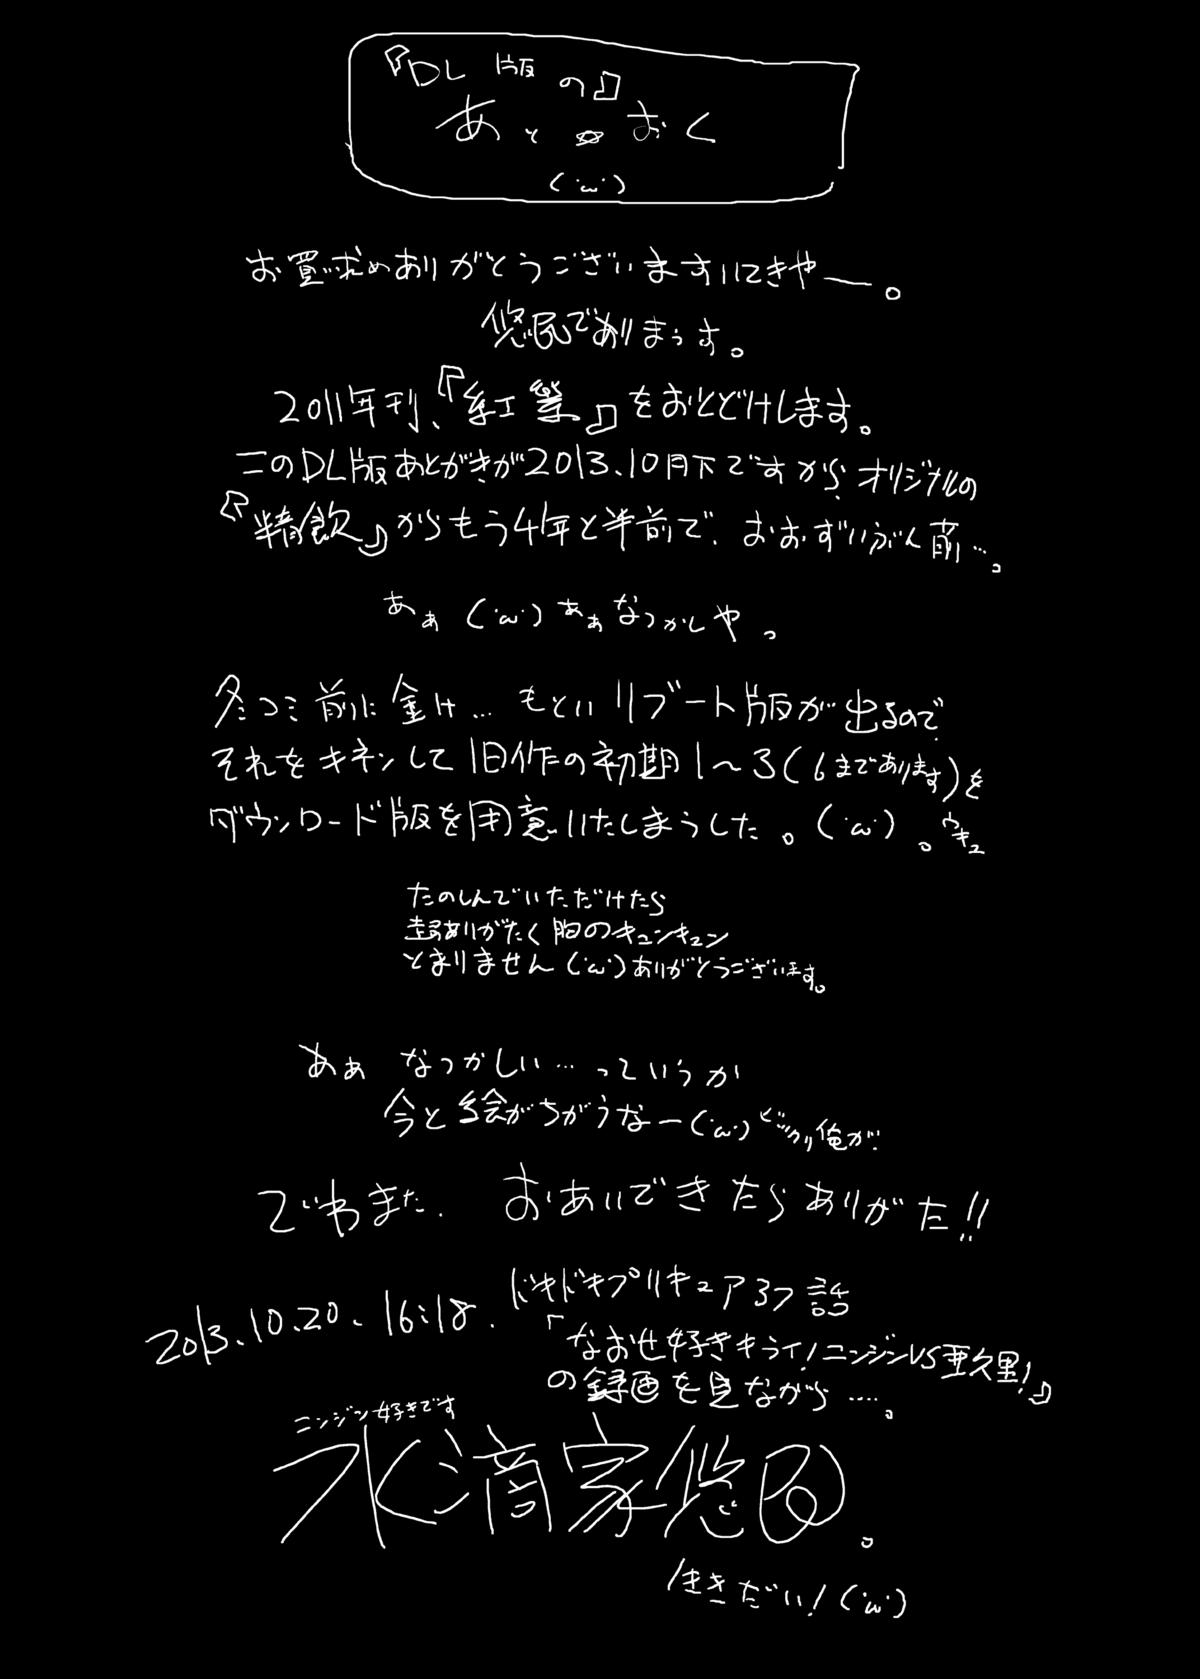 『DL版の』
あと☆おく
(・ω・)
お買い求めありがとうございますいてきやー。
悠民でありまうす。
2011年刊、『紅業』をおとどけします。
このDL版あとがきが2013.10月下ですから、オリジナルの
『精飲』からもう4年と半前で、おおずいぶん前…。
あぁ(・ω・)あぁなつかしや。
冬コミ前に金け…もといリブート版が出るので
それをキネンして旧作の初期1~3(6まであります)を
ダウンロード版を用意いたしまうした。(・ω・)。ウキュ
たのしんでいただけたら
ありがたく胸のキュンキュン
とまりません(・ω・)ありがとうございます。
あぁ なつかしい…っていうか
今と絵がちがうなー(・ω・)ビックリ俺が
でわまた、おあいできたらありがた!!
2013.10.20.16:18.ドキドキプリキュア37話
『なおせ好きキライ!ニンジンVS亜久里!』
の録画を見ながら……。
ニンジン好きです
水滴家悠
生きだい!(・ω・)